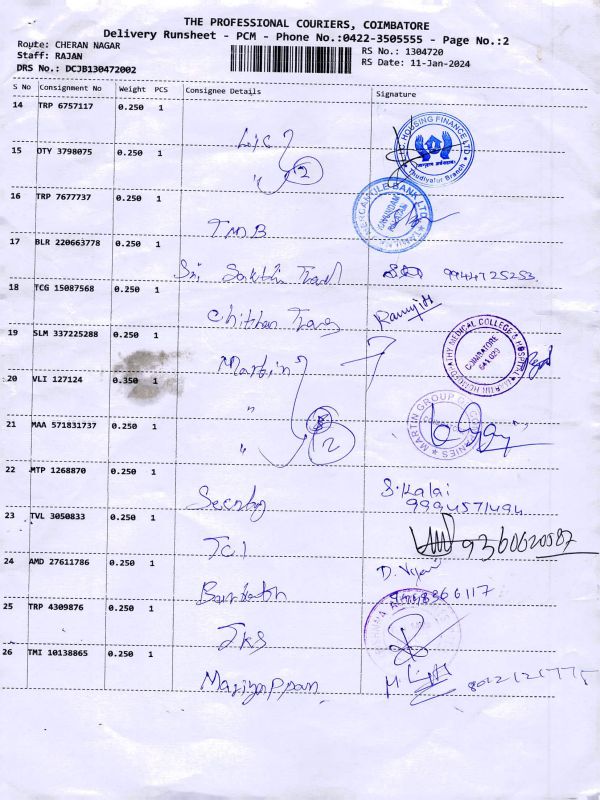 THE PROFESSIONAL COURIERS, COIMBATORE
Delivery Runsheet - PCM - Phone No.:0422-3505555 - Page No.:2
Route: CHERAN NAGAR
Staff: RAJAN
DRS No.: DCJB130472002
RS No.: 1304720
RS Date: 11-Jan-2024
S No Consignment No Weight PCS Consignee Details Signature
14 TRP 6757117 0.250 1
LIC HOUSING FINANCE LTD
Thudiyalur Branch
15 DTY 3798075 0.250 1
Lic
" 2
16 TRP 7677737 0.250 1
TMB
17 BLR 220663778 0.250 1
Sri Sakthi 9944725253
18 TCG 15087568 0.250 1
Ramjith
19 SLM 337225288 0.250 1
Martin
MARTIN HOMOEOPATHY MEDICAL COLLEGE & HOSPITAL
COIMBATORE
20 VLI 127124 0.350 1
"
MARTIN GROUP OF COMPANIES
21 MAA 571831737 0.250 1
" 2
22 MTP 1268870 0.250 1
S.Kalai
9994571494
23 TVL 3050833 0.250 1
TCI 9360620587
24 AMD 27611786 0.250 1
D.
25 TRP 4309876 0.250 1
JKS
26 TMI 10138865 0.250 1
Mariyappan